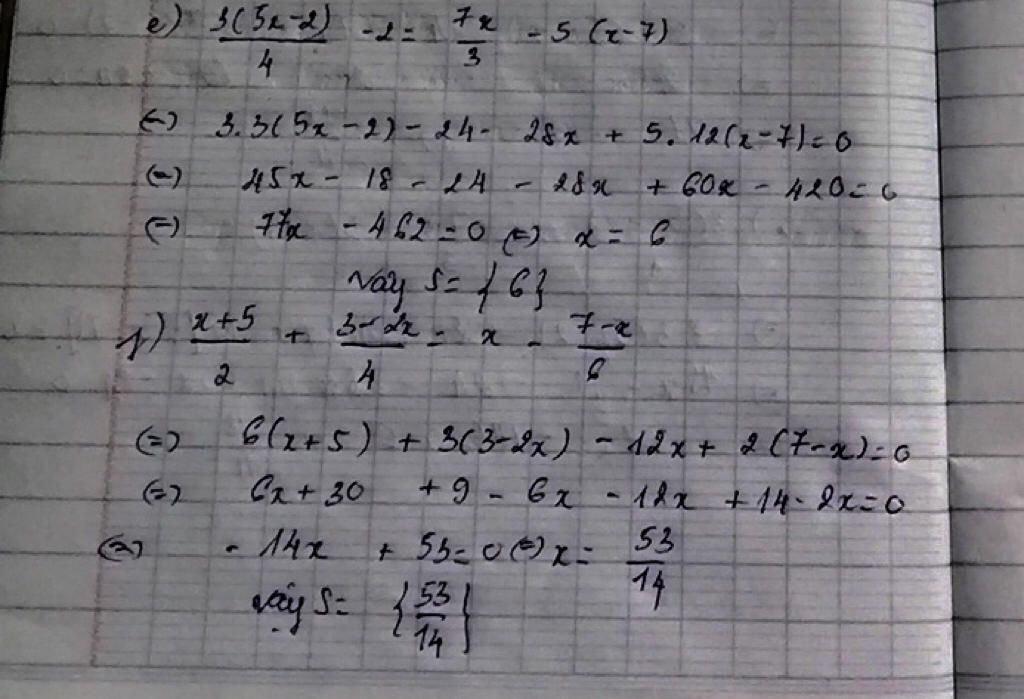 e) 3(5x-2)/4 -2 = 7x/3 - 5 (x-7)
(=) 3.3(5x-2) - 24 - 28x + 5.12(x-7) = 0
(=) 45x - 18 - 24 - 28x + 60x - 420 = 0
(=) 77x - 462 = 0 (=) x = 6
Vậy S = {6}
f) x+5/2 + 3-2x/4 = x - 7-x/6
(=) 6(x+5) + 3(3-2x) - 12x + 2(7-x) = 0
(=) 6x+30 + 9 - 6x - 12x + 14 - 2x = 0
(=) - 14x + 53 = 0 (=) x = 53/14
Vậy S = {53/14}